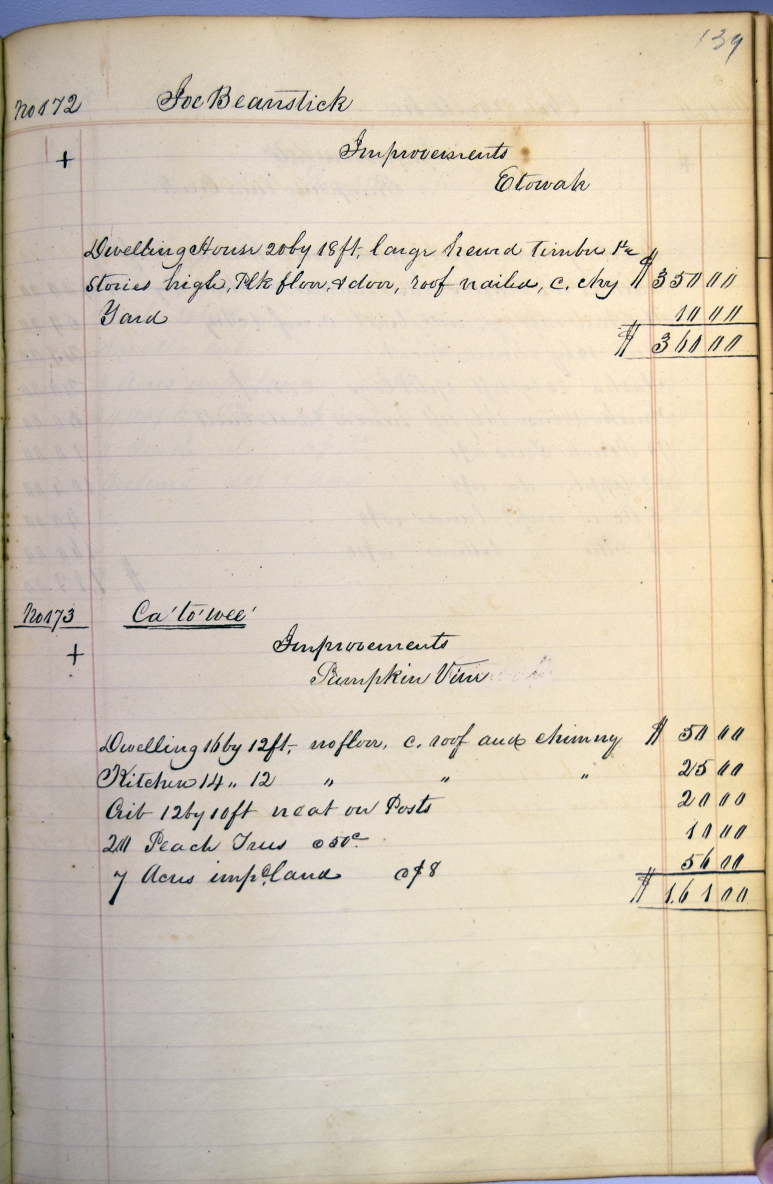 139
No 172 Joe Beanstick
+ Improvements
Etowah
Dwelling House 20 by 18 ft, large hewed timber 1½
Stories high, Plk floor, & door, roof nailed, c. chy $ 350 00
Yard 10 00
$ 360 00
No 173 Ca'to'wee'
+ Improvements
Pumpkin Vine
Dwelling 16 by 12 ft, no floor, c. roof and chimney $ 50 00
Kitchen 14 " 12 " " " 25 00
Crib 12 by 10 ft neat on Posts 20 00
20 Peach Trees @ 50c 10 00
7 Acres impd land @ $8 56 00
$ 161 00